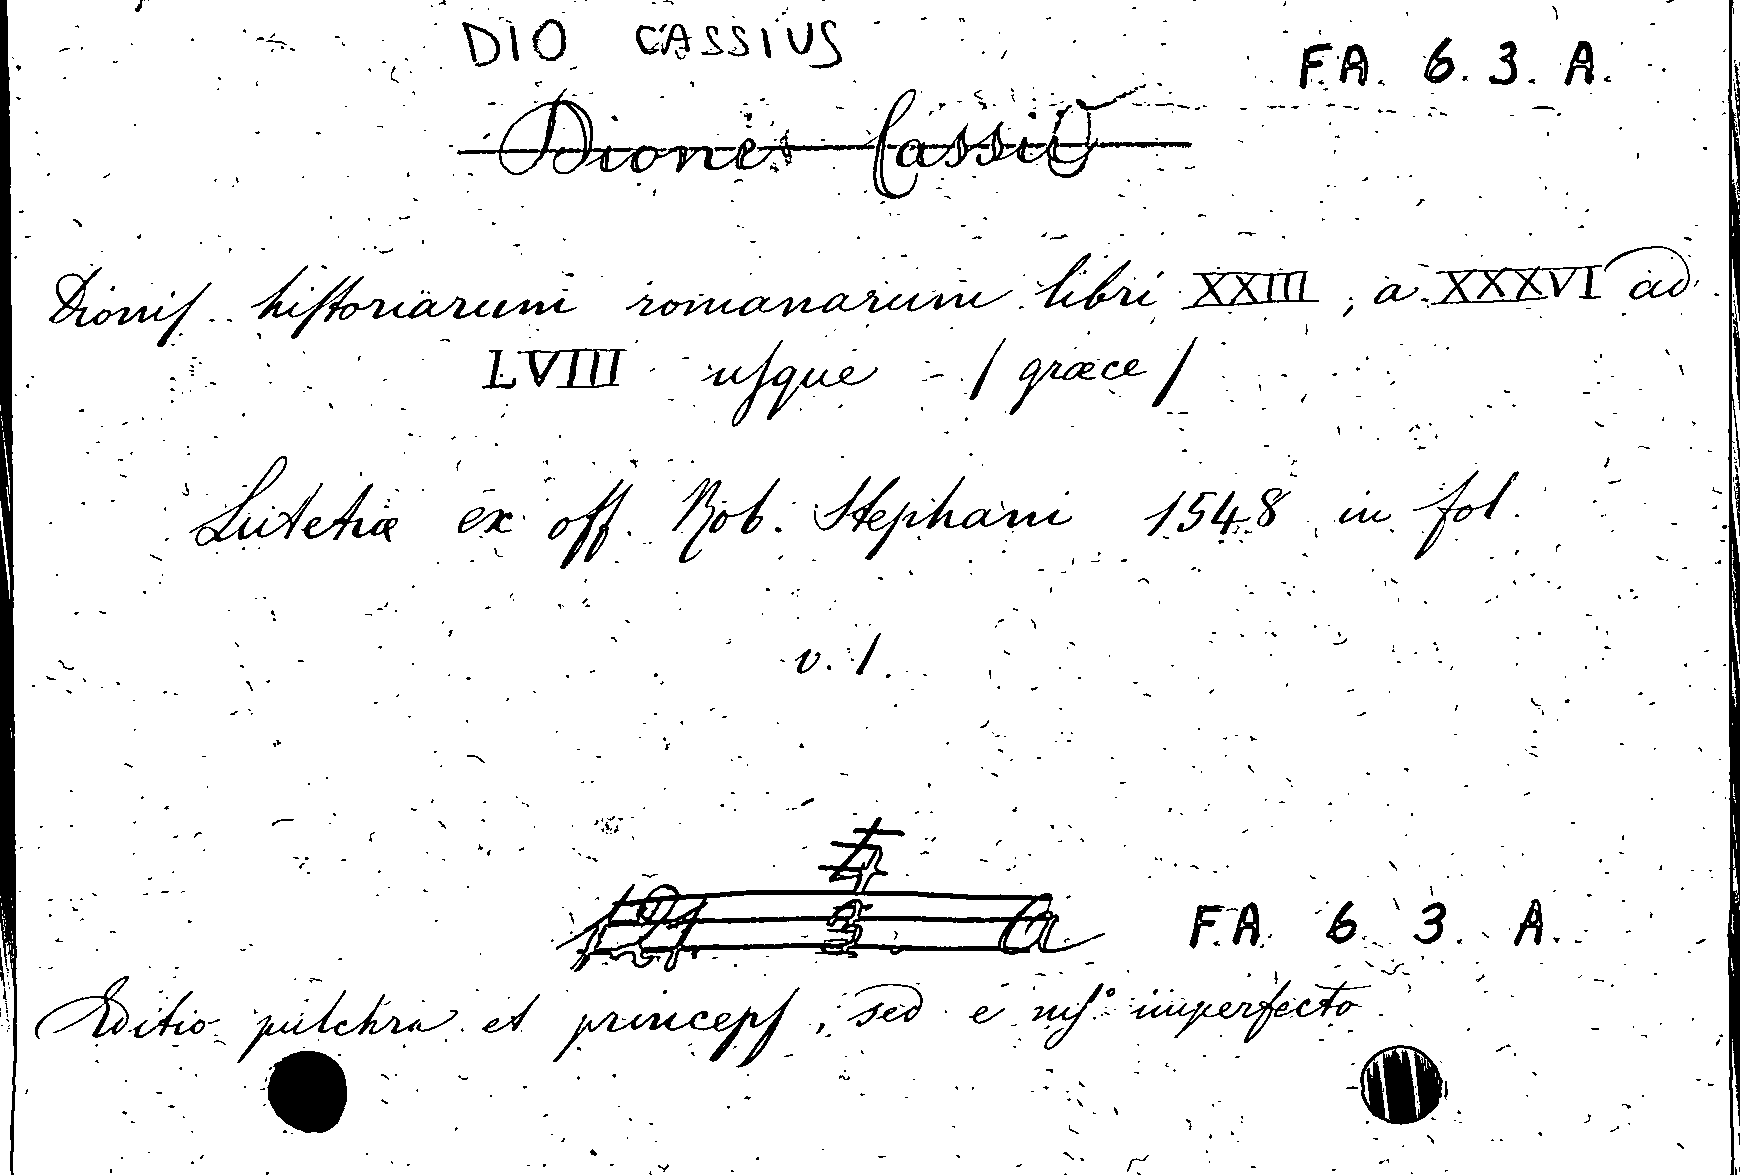 DIO CASSIUS
F.A. 6. 3. A.
Diones Cassius
Dionis historiarum romanarum libri XXIII, a XXXVI ad
LVIII usque - / græce /
Lutetiæ ex off. Rob. Stephani 1548 in fol.
v. 1.
3. a F.A. 6. 3. A.
Editio pulchra et princeps, sed e ms° imperfecto